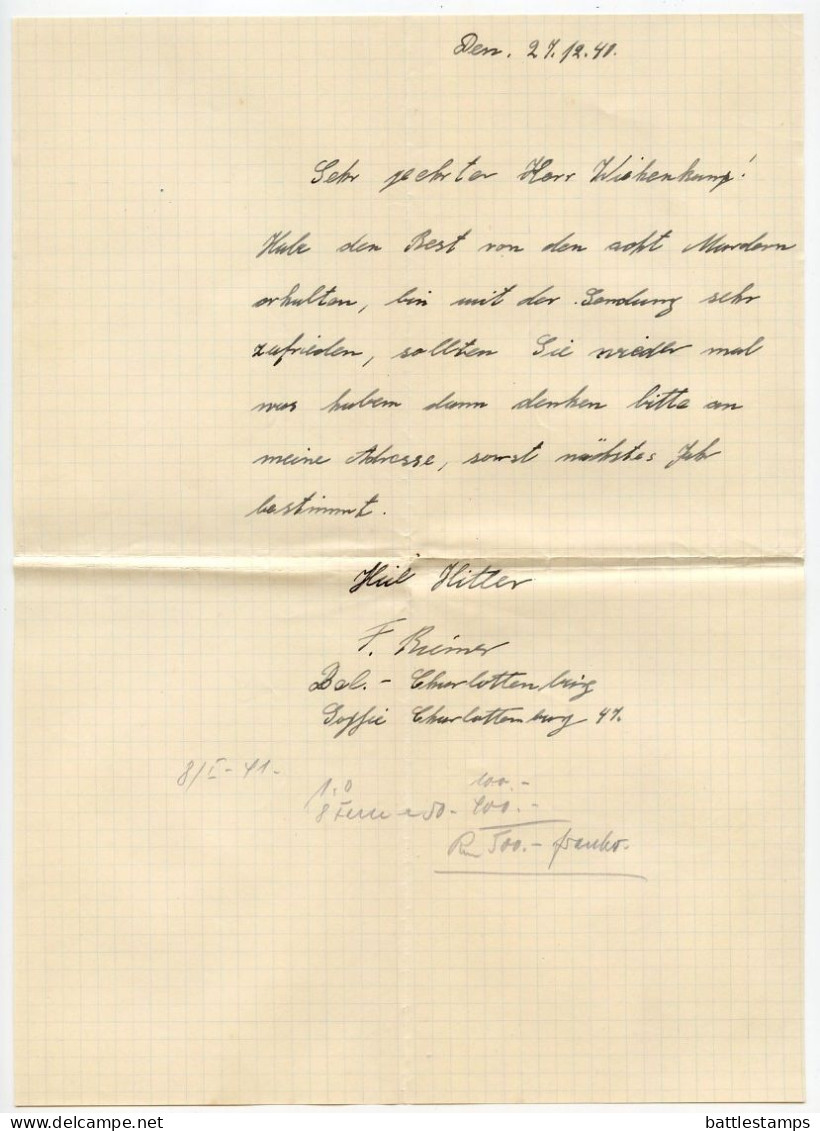 Den. 27.12.40.
Sehr geehrter Herr Wiekenkamp!
Habe den Rest von den acht Mardern
erhalten, bin mit der Sendung sehr
zufrieden, sollten Sie wieder mal
was haben dann denken bitte an
meine Adresse, sonst nächstes Jahr
bestimmt.
Heil Hitler
F. Riemer
Bln. - Charlottenburg
Sophie Charlottenburg 47.
8/I - 41.
100.-
8 a 50 - 400.-
Rm 500.- franko.
battlestamps